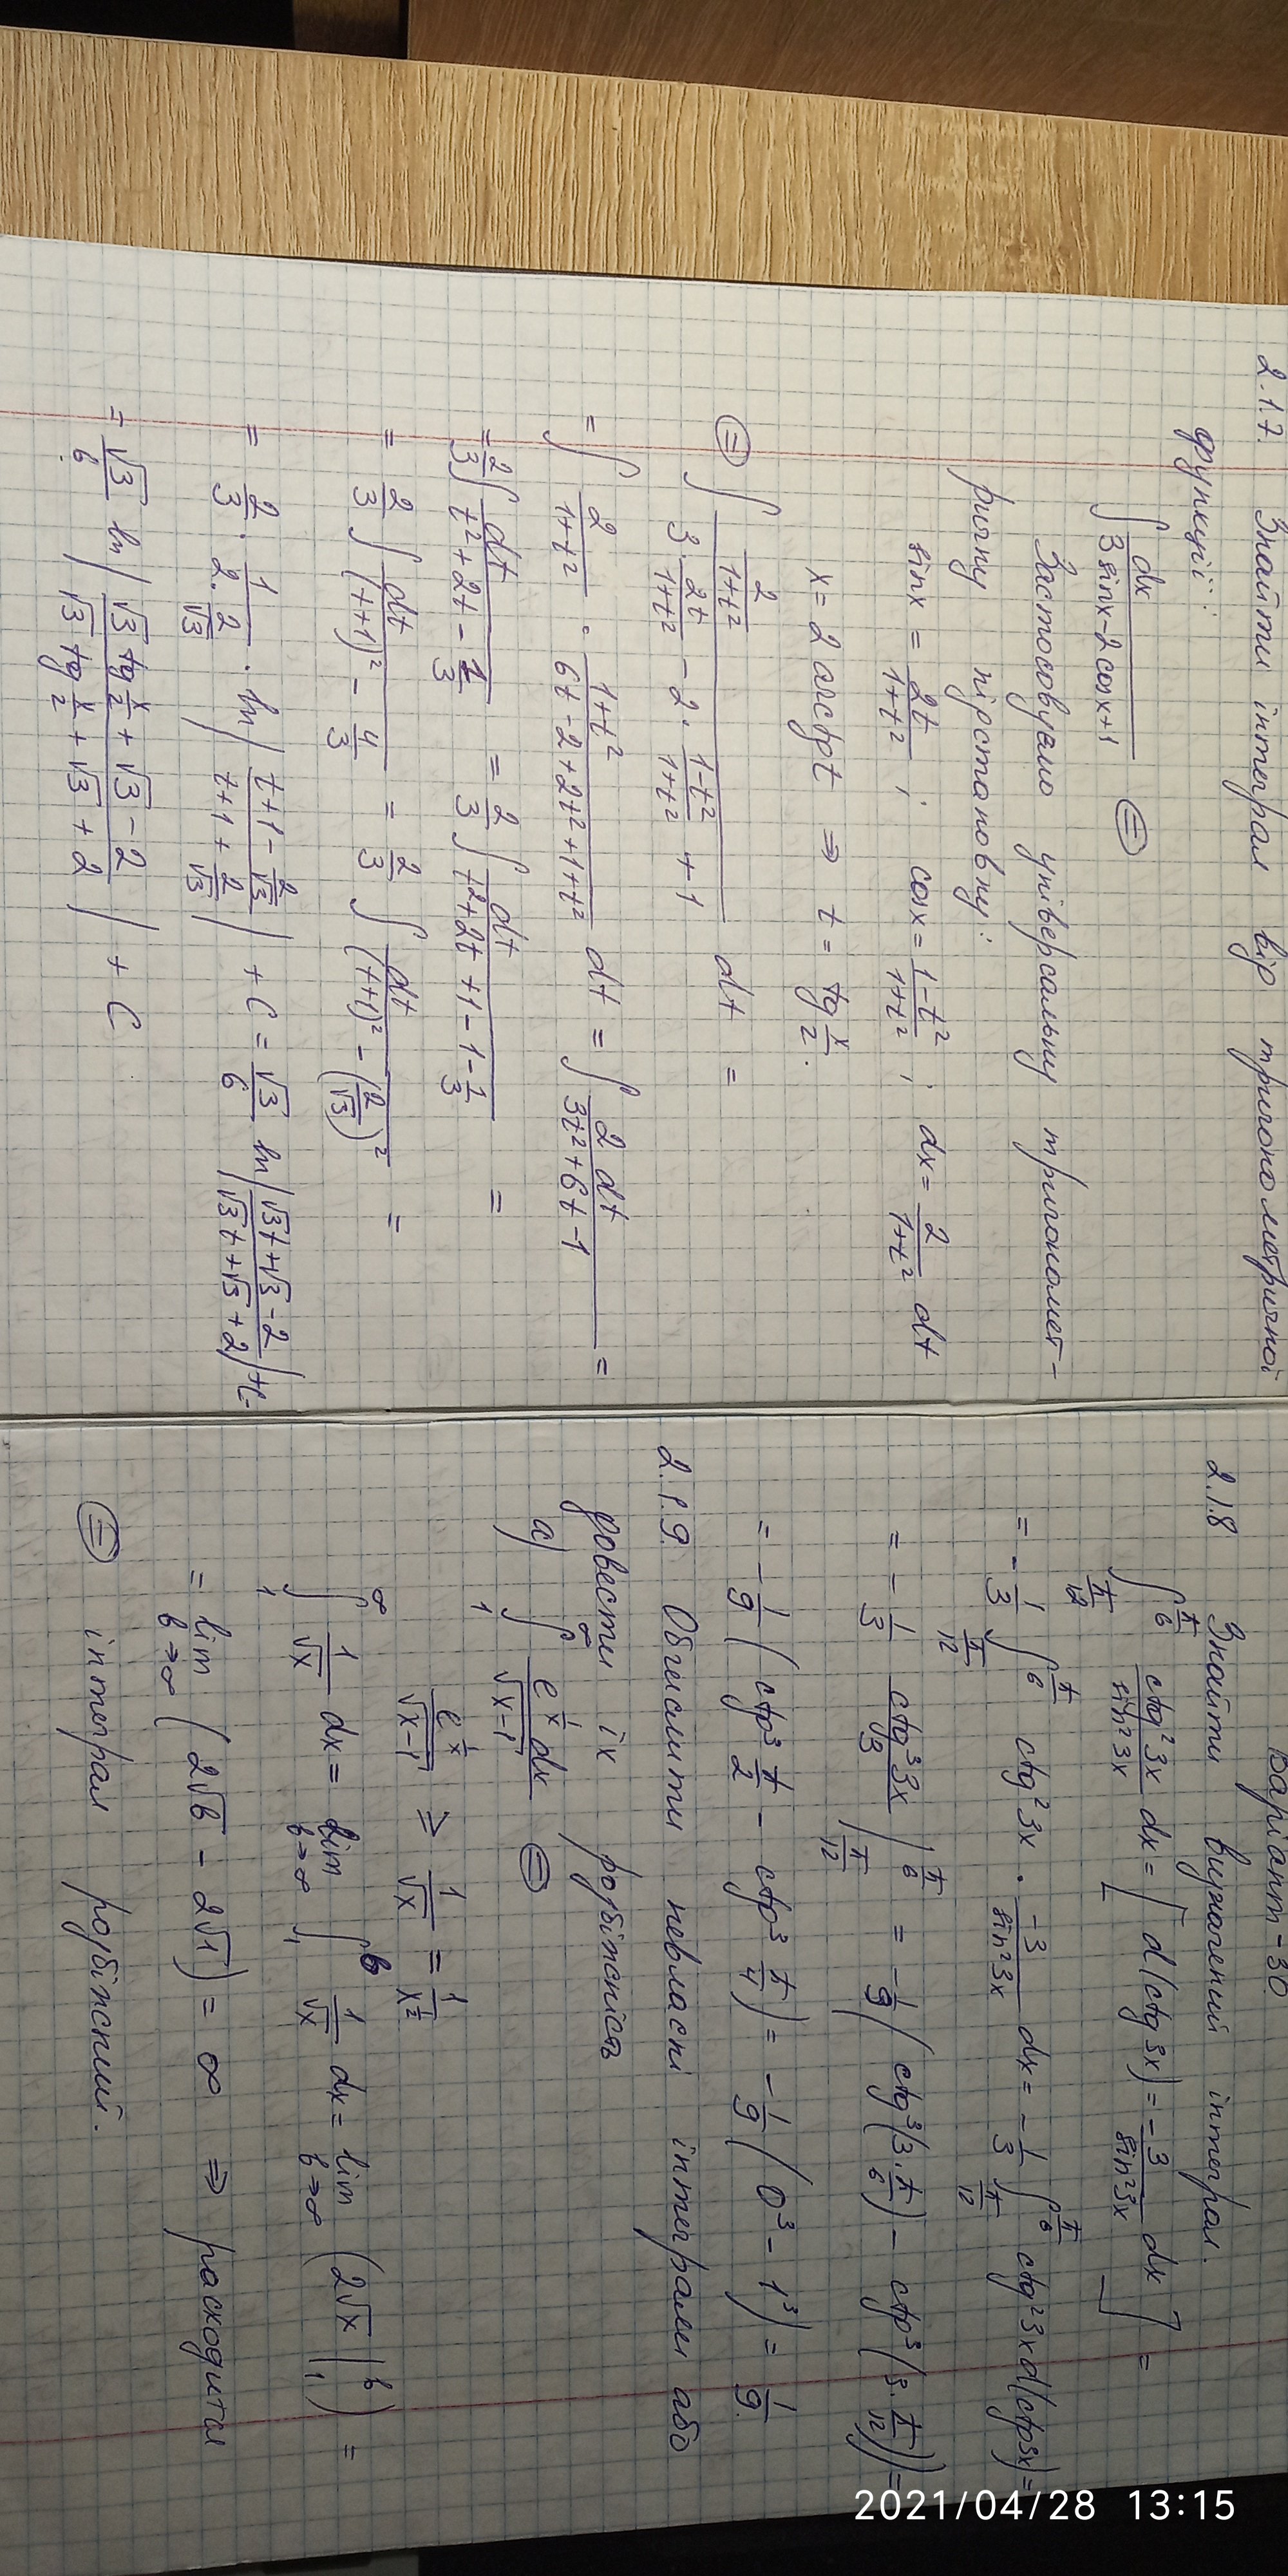 2.1.7. Знайти інтеграл від тригонометричної
функції:
∫ dx / (3 sinx - 2 cosx + 1) ⊜
Застосовуємо універсальну тригономет-
ричну підстановку:
sinx = 2t/(1+t²) ; cosx = (1-t²)/(1+t²) ; dx = 2/(1+t²) dt
x = 2 arctgt ⇒ t = tg x/2.
⊜ ∫ (2/(1+t²)) / (3·2t/(1+t²) - 2·(1-t²)/(1+t²) + 1) dt =
= ∫ 2/(1+t²) · (1+t²)/(6t-2+2t²+1+t²) dt = ∫ 2dt/(3t²+6t-1) =
= 2/3 ∫ dt/(t²+2t-1/3) = 2/3 ∫ dt/(t²+2t+1-1-1/3) =
= 2/3 ∫ dt/((t+1)² - 4/3) = 2/3 ∫ dt/((t+1)² - (2/√3)²) =
= 2/3 · 1/(2·2/√3) · ln |(t+1-2/√3)/(t+1+2/√3)| + C = √3/6 ln |(√3t+√3-2)/(√3t+√3+2)| + C =
= √3/6 ln |(√3 tg x/2 + √3 - 2)/(√3 tg x/2 + √3 + 2)| + C
Варіант - 30
2.1.8 Знайти визначений інтеграл.
∫_{π/12}^{π/6} ctg²3x/sin²3x dx = [d(ctg 3x) = -3/sin²3x dx] =
= -1/3 ∫_{π/12}^{π/6} ctg²3x · -3/sin²3x dx = -1/3 ∫_{π/12}^{π/6} ctg²3x d(ctg3x) =
= -1/3 ctg³3x/3 |_{π/12}^{π/6} = -1/9 (ctg³(3·π/6) - ctg³(3·π/12)) =
= -1/9 (ctg³ π/2 - ctg³ π/4) = -1/9 (0³ - 1³) = 1/9.
2.1.9. Обчислити невласні інтеграли або
довести їх розбіжність
а) ∫_1^∞ e^{1/x} dx/√(x-1) ⊜
e^{1/x}/√(x-1) ⩾ 1/√x = 1/x^{1/2}
∫_1^∞ 1/√x dx = lim_{b→∞} ∫_1^b 1/√x dx = lim_{b→∞} (2√x |_1^b) =
= lim_{b→∞} (2√b - 2√1) = ∞ ⇒ расходиться
⊜ інтеграл розбіжний.
2021/04/28 13:15